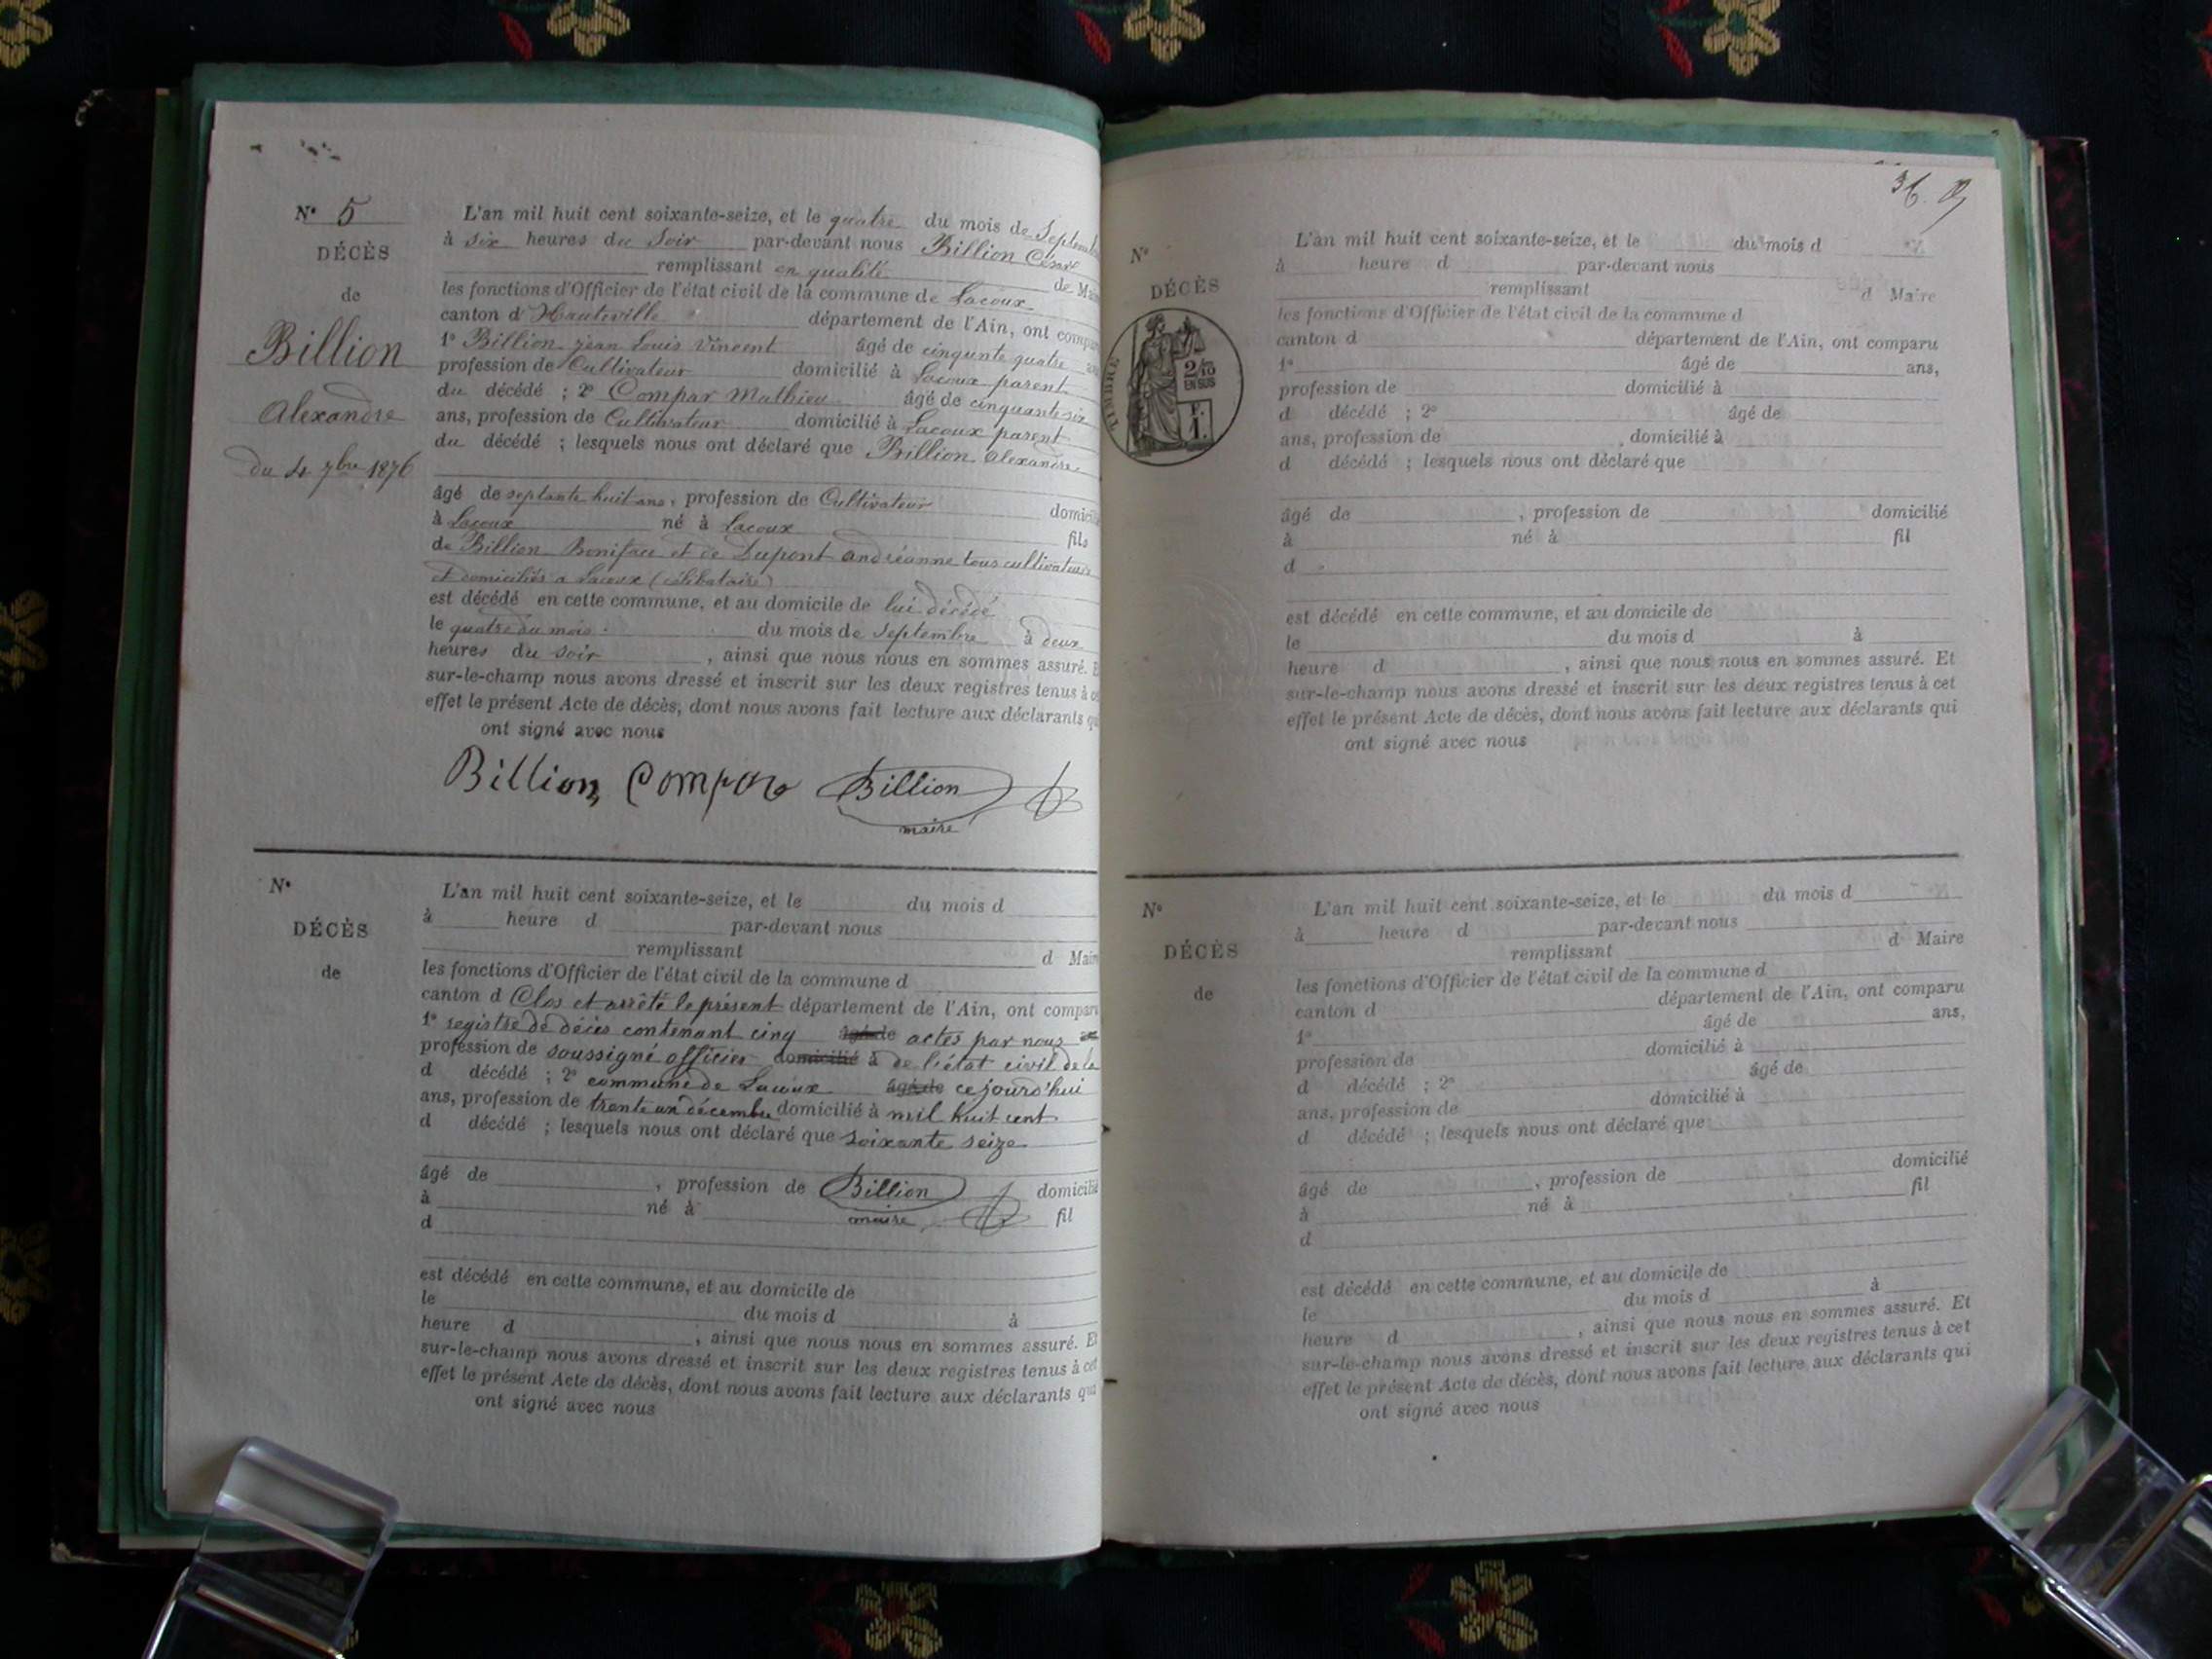 N° 5
DÉCÈS
de
Billion
Alexandre
du 4 7bre 1876
L'an mil huit cent soixante-seize, et le quatre du mois de Septemb
à six heures du Soir par-devant nous Billion César
remplissant en qualité de Mai
les fonctions d'Officier de l'état civil de la commune de Lacoux
canton d'Hauteville département de l'Ain, ont compa
1° Billion jean Louis Vincent âgé de cinqunte quatre
profession de Cultivateur domicilié à Lacoux parent
du décédé ; 2° Compar Mathieu âgé de cinquante six
ans, profession de Cultivateur domicilié à Lacoux parent
du décédé ; lesquels nous ont déclaré que Billion Alexandre
âgé de septante huit ans, profession de Cultivateur domici
à Lacoux né à Lacoux fils
de Billion et de Dupont andréanne tous cultivateurs
et domiciliés a Lacoux (célibataire)
est décédé en cette commune, et au domicile de lui décédé
le quatre du mois du mois de Septembre à deux
heures du soir, ainsi que nous nous en sommes assuré. E
sur-le-champ nous avons dressé et inscrit sur les deux registres tenus à ce
effet le présent Acte de décès, dont nous avons fait lecture aux déclarants qu
ont signé avec nous
Billion Compar Billion
maire
N°
DÉCÈS
de
L'an mil huit cent soixante-seize, et le du mois d
à heure d par-devant nous
remplissant d Maire
les fonctions d'Officier de l'état civil de la commune d
canton d Clos et arrêté le présent département de l'Ain, ont comparu
1° registre de décès contenant cinq âgé de actes par nous ans
profession de soussigné officier domicilié à de l'état civil de la
d décédé ; 2° commune de Lacoux âgé de ce jourd'hui
ans, profession de trente un décembre domicilié à mil huit cent
d décédé ; lesquels nous ont déclaré que soixante seize
âgé de , profession de Billion domicilié
à né à maire fil
d
est décédé en cette commune, et au domicile de
le du mois d à
heure d , ainsi que nous nous en sommes assuré. Et
sur-le-champ nous avons dressé et inscrit sur les deux registres tenus à cet
effet le présent Acte de décès, dont nous avons fait lecture aux déclarants qui
ont signé avec nous
36.
N°
DÉCÈS
TIMBRE
2/10
EN SUS
F.
1.
L'an mil huit cent soixante-seize, et le du mois d
à heure d par-devant nous
remplissant d Maire
les fonctions d'Officier de l'état civil de la commune d
canton d département de l'Ain, ont comparu
1° âgé de ans,
profession de domicilié à
d décédé ; 2° âgé de
ans, profession de domicilié à
d décédé ; lesquels nous ont déclaré que
âgé de , profession de domicilié
à né à fil
d
est décédé en cette commune, et au domicile de
le du mois d à
heure d , ainsi que nous nous en sommes assuré. Et
sur-le-champ nous avons dressé et inscrit sur les deux registres tenus à cet
effet le présent Acte de décès, dont nous avons fait lecture aux déclarants qui
ont signé avec nous
N°
DÉCÈS
de
L'an mil huit cent soixante-seize, et le du mois d
à heure d par-devant nous
remplissant d Maire
les fonctions d'Officier de l'état civil de la commune d
canton d département de l'Ain, ont comparu
1° âgé de ans,
profession de domicilié à
d décédé ; 2° âgé de
ans, profession de domicilié à
d décédé ; lesquels nous ont déclaré que
âgé de , profession de domicilié
à né à fil
d
est décédé en cette commune, et au domicile de
le du mois d à
heure d , ainsi que nous nous en sommes assuré. Et
sur-le-champ nous avons dressé et inscrit sur les deux registres tenus à cet
effet le présent Acte de décès, dont nous avons fait lecture aux déclarants qui
ont signé avec nous